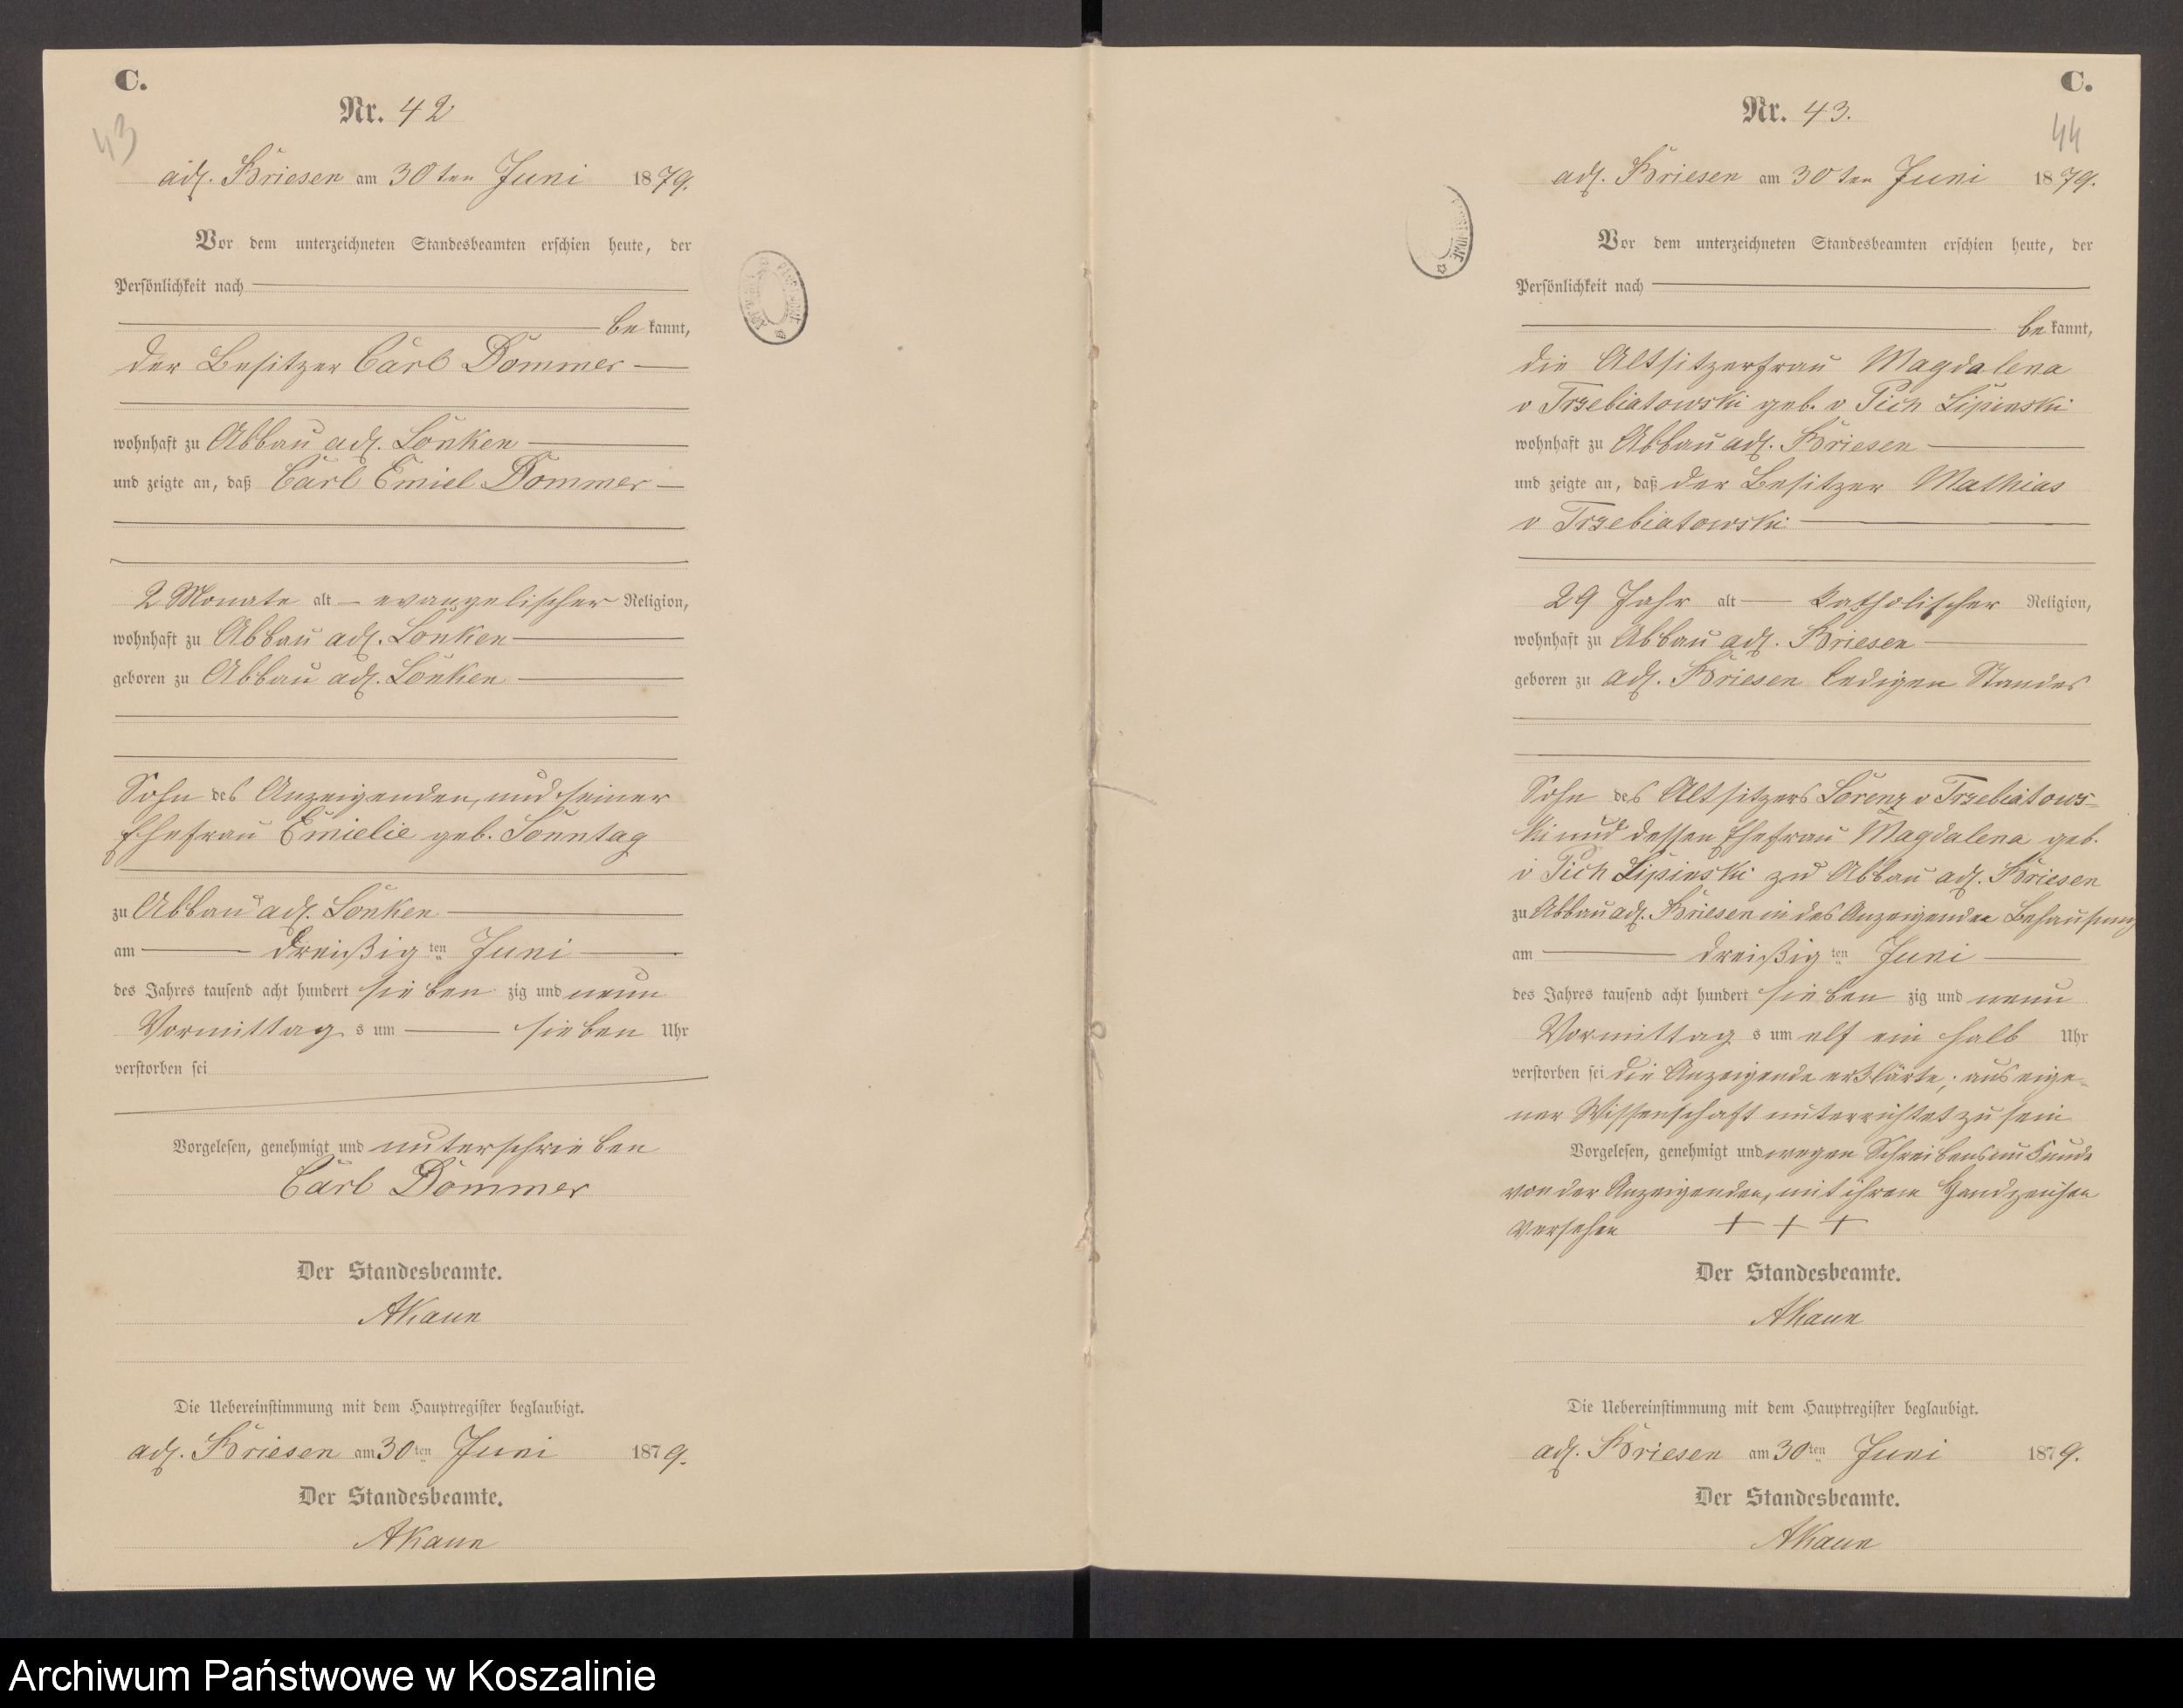 C.
Nr. 42
43
adl. Briesen am 30ten Juni 1879.
Vor dem unterzeichneten Standesbeamten erschien heute, der
Persönlichkeit nach
be kannt,
der Besitzer Carl Dommer
wohnhaft zu Abbau adl. Lonken
und zeigte an, daß Carl Emiel Dommer
2 Monate alt evangelischer Religion,
wohnhaft zu Abbau adl. Lonken
geboren zu Abbau adl. Lonken
Sohn des Anzeigenden, und seiner
Ehefrau Emielie geb. Sonntag
zu Abbau adl. Lonken
am dreißig ten Juni
des Jahres tausend acht hundert sieben zig und neun
Vormittag s um sieben Uhr
verstorben sei
Vorgelesen, genehmigt und unterschrieben
Carl Dommer
Der Standesbeamte.
AKaun
Die Uebereinstimmung mit dem Hauptregister beglaubigt.
adl. Briesen am 30ten Juni 1879.
Der Standesbeamte.
AKaun
C.
Nr. 43.
44
adl. Briesen am 30ten Juni 1879.
Vor dem unterzeichneten Standesbeamten erschien heute, der
Persönlichkeit nach
be kannt,
die Altsitzerfrau Magdalena
v Trzebiatowski geb. v Pich Lipinski
wohnhaft zu Abbau adl. Briesen
und zeigte an, daß der Besitzer Mathias
v Trzebiatowski
29 Jahr alt katholischer Religion,
wohnhaft zu Abbau adl. Briesen
geboren zu adl. Briesen ledigen Standes
Sohn des Altsitzers Lorenz v Trzebiatows-
ki und dessen Ehefrau Magdalena geb.
v Pich Lipinski zu Abbau adl. Briesen
zu Abbau adl. Briesen in des Anzeigenden Behausung
am dreißig ten Juni
des Jahres tausend acht hundert sieben zig und neun
Vormittag s um elf ein halb Uhr
verstorben sei die Anzeigende erklärte, aus eige-
ner Wissenschaft unterrichtet zu sein
Vorgelesen, genehmigt und wegen Schreibensunkunde
von der Anzeigenden, mit ihrem Handzeichen
versehen + + +
Der Standesbeamte.
AKaun
Die Uebereinstimmung mit dem Hauptregister beglaubigt.
adl. Briesen am 30ten Juni 1879.
Der Standesbeamte.
AKaun
Archiwum Państwowe w Koszalinie